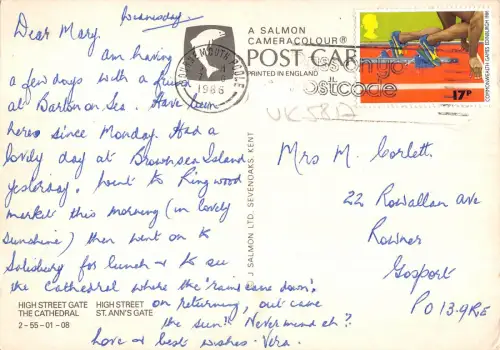 Wednesday.
Dear Mary,
am having
a few days with a friend
at Barton on Sea. Have been
here since Monday. Had a
lovely day at Brownsea Island
yesterday. Went to Ringwood
market this morning (in lovely
sunshine) then went on to
Salisbury for lunch & to see
the cathedral where the "rain came down".
on returning, out came
the sun!! Never mind eh?
Love & best wishes - Vera.
HIGH STREET GATE
THE CATHEDRAL
HIGH STREET
ST. ANN'S GATE
2-55-01-08
A SALMON
CAMERACOLOUR®
POST CAR
PRINTED IN ENGLAND
BOURNEMOUTH POOLE
1986
ostcode
COMMONWEALTH GAMES EDINBURGH 1986
17P
UK 5817
J. SALMON LTD. SEVENOAKS, KENT
Mrs M. Corlett.
22 Rowallan Ave
Rowner
Gosport
PO 13.9RE